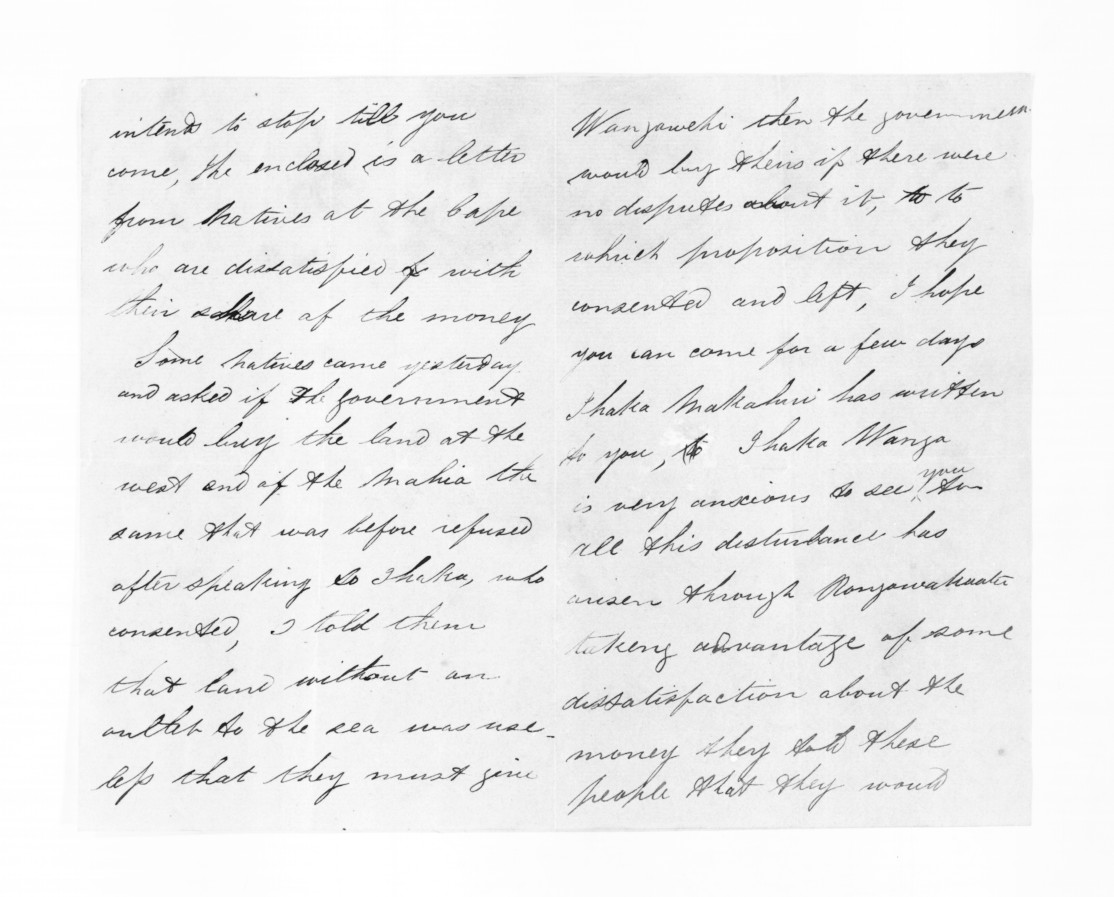 intends to stop till you
come, The enclosed is a letter
from Natives at the Cape
who are dissatisfied with
their share of the money
Some Natives came yesterday
and asked if the government
would buy the land at the
west end of the Mahia the
same that was before refused
after speaking to Ihaka, who
consented, I told them
that land without an
outlet to the sea was use-
less that they must give
Wangawehi then the government
would buy theirs if there were
no disputes about it, to to
which proposition they
consented and left, I hope
you can come for a few days
Ihaka Makahuri has written
to you, to Ihaka Wanga
is very anxious to see you
all this disturbance has
arisen through Rongowakaata
takeng advantage of some
dissatisfaction about the
money they told these
people that they would